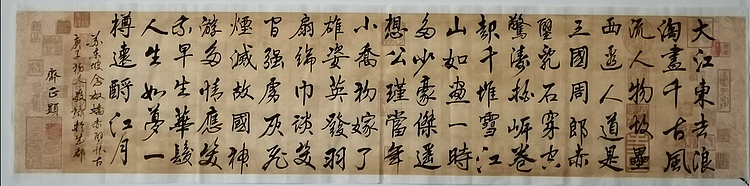 大江東去浪
淘盡千古風
流人物故壘
西邊人道是
三國周郎赤
壁亂石穿空
驚濤拍岸卷
起千堆雪江
山如畫一時
多少豪傑遙
想公瑾當年
小喬初嫁了
雄姿英發羽
扇綸巾談笑
間強虜灰飛
煙滅故國神
游多情應笑
我早生華髮
人生如夢一
樽還酹江月
蘇東坡念奴嬌赤壁懷古
庚子初冬
正題